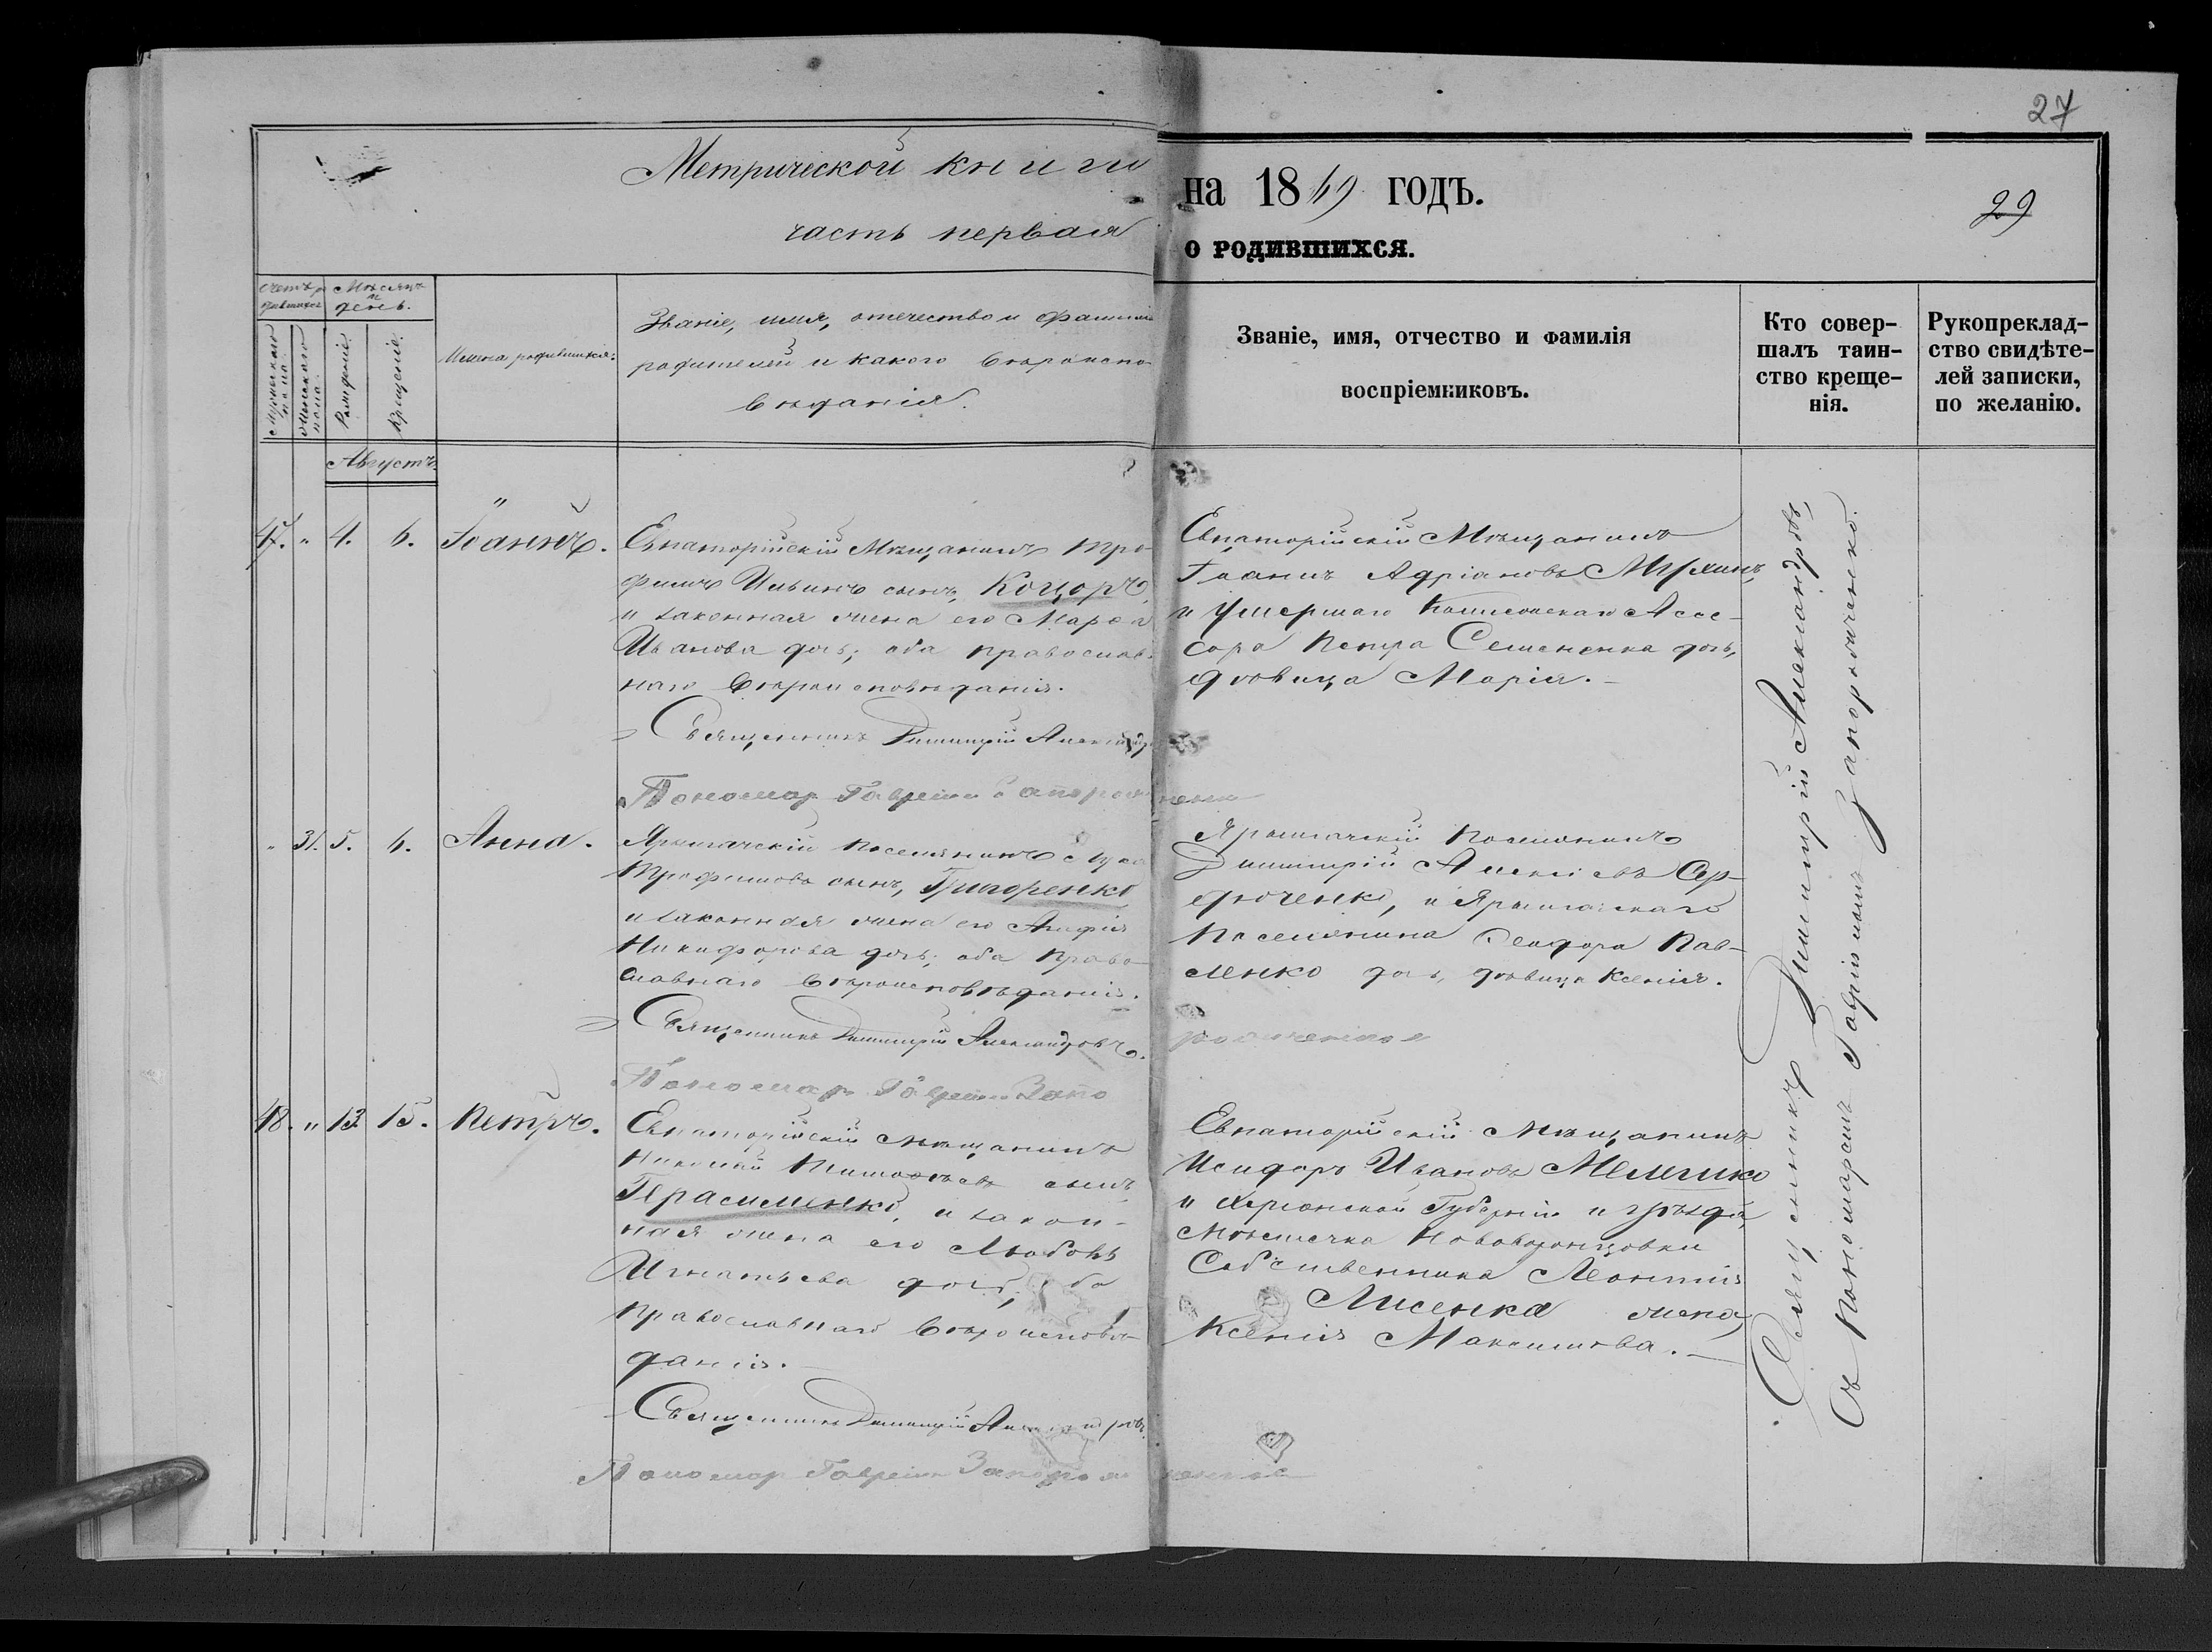 27
Метрической книги
на 1869 годъ.
29
часть первая
о родившихся.
Счетъ родившихся
Мѣсяцъ и день.
Мужескаго пола.
Женскаго пола.
Рожденіе.
Крещеніе.
Имена родившихся.
Званіе, имя, отечество и фамилія
родителей и какого вѣроиспо-
вѣданія.
Званіе, имя, отчество и фамилія
воспріемниковъ.
Кто совер-
шалъ таин-
ство креще-
нія.
Рукопреклад-
ство свидѣте-
лей записки,
по желанію.
Августъ.
47. " 4. 6. Іоаннъ.
Евпаторійскій Мѣщанинъ Тро-
фимъ Ильинъ сынъ, Коцоръ,
и законная жена его Марѳа
Иванова дочь; оба православ-
наго вѣроисповѣданія.
Священникъ Димитрій Александр
Пономар Гавреил Запорожченко
Евпаторійскій Мѣщанинъ
Іоаннъ Адріановъ Мухинъ,
и умершаго Колежскаго Ассе-
сора Петра Семененка дочь,
дѣвица Марія.
" 31. 5. 6. Анна.
Ярылгачскій Поселянинъ
Трофимовъ сынъ, Григоренко
и законная жена его Агафія
Никифорова дочь; оба Право-
славнаго вѣроисповѣданія.
Священникъ Димитрій Александровъ.
Пономар Гавреил Запорожченко
Ярылгачскій Поселянинъ
Димитрій Алексѣевъ Сер-
дюченко, и Ярылгачскаго
Поселянина Ѳеодора Пав-
ленко дочь, дѣвица Ксенія.
48. " 13. 15. Петръ.
Евпаторійскій мѣщанинъ
Николай Тимоѳѣевъ сынъ,
Герасименко, и закон-
ная жена его Любовь
Игнатьева дочь; оба
православнаго вѣроисповѣ-
данія.
Священникъ Димитрій Александровъ.
Пономар Гавреил Запорожченко
Евпаторійскій Мѣщанинъ
Исидоръ Ивановъ
и Херсонской Губерніи и уѣзда,
мѣстечка Нововоронцовки
Собственника Леонтія
Лисенка жена,
Ксенія Максимова.
Священникъ Димитрій Александровъ,
съ Пономаремъ Гавріиломъ Запорожченко.